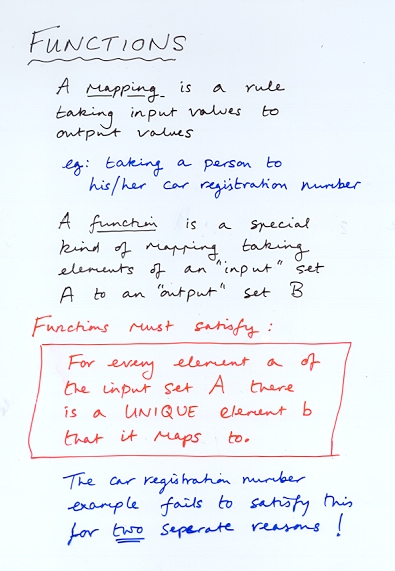 FUNCTIONS
A mapping is a rule
taking input values to
output values
eg: taking a person to
his/her car registration number
A function is a special
kind of mapping taking
elements of an "input" set
A to an "output" set B
Functions must satisfy:
For every element a of
the input set A there
is a UNIQUE element b
that it maps to.
The car registration number
example fails to satisfy this
for two separate reasons!